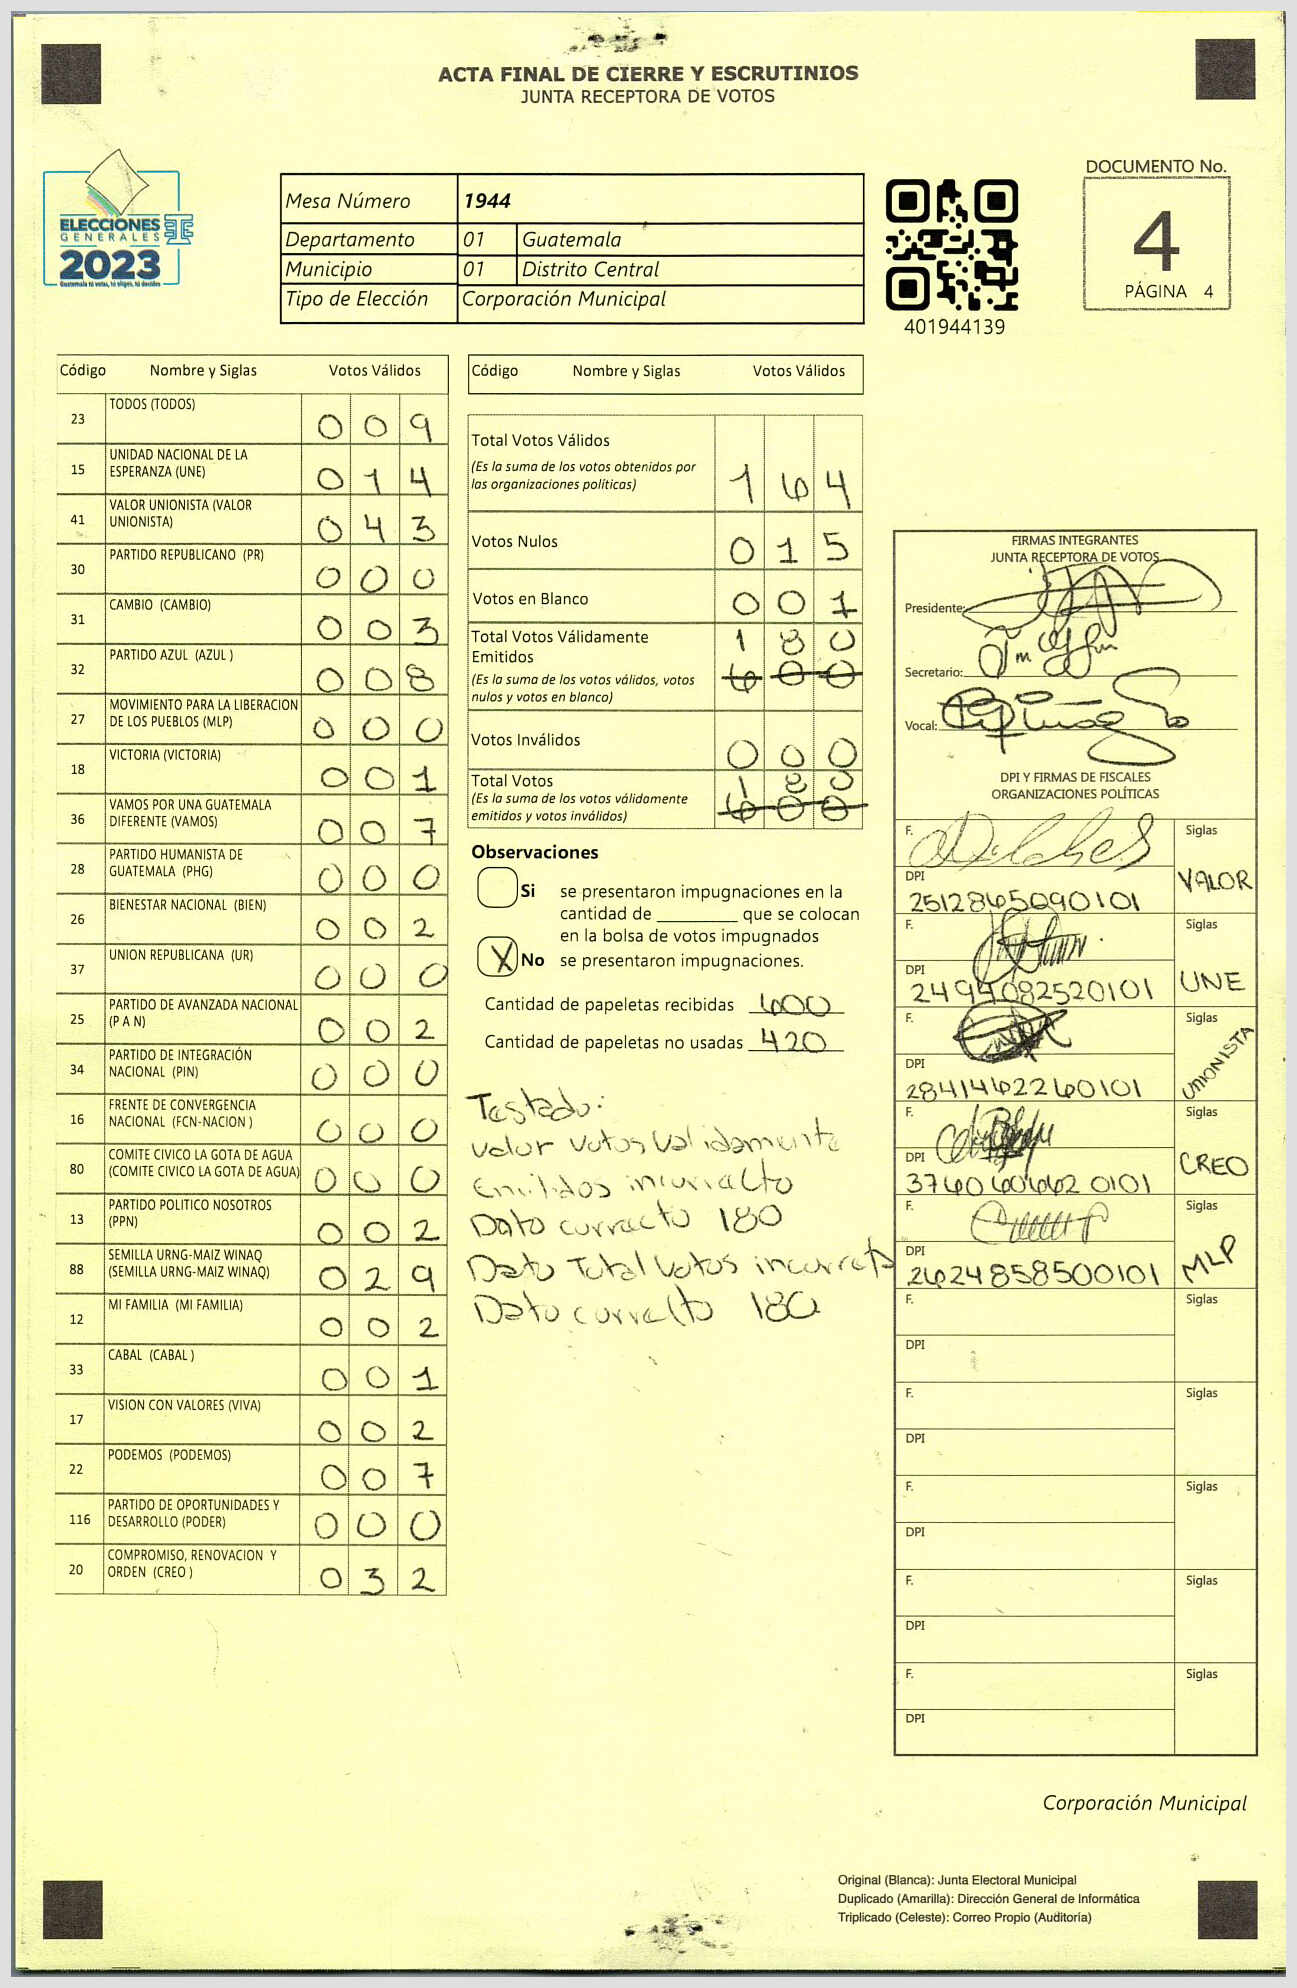 ACTA FINAL DE CIERRE Y ESCRUTINIOS
JUNTA RECEPTORA DE VOTOS
ELECCIONES
GENERALES
2023
Guatemala tú votas, tú eliges, tú decides
Mesa Número 1944
Departamento 01 Guatemala
Municipio 01 Distrito Central
Tipo de Elección Corporación Municipal
401944139
DOCUMENTO No.
4
PÁGINA 4
Código Nombre y Siglas Votos Válidos
23 TODOS (TODOS) 0 0 9
15 UNIDAD NACIONAL DE LA
ESPERANZA (UNE) 0 1 4
41 VALOR UNIONISTA (VALOR
UNIONISTA) 0 4 3
30 PARTIDO REPUBLICANO (PR) 0 0 0
31 CAMBIO (CAMBIO) 0 0 3
32 PARTIDO AZUL (AZUL ) 0 0 8
27 MOVIMIENTO PARA LA LIBERACION
DE LOS PUEBLOS (MLP) 0 0 0
18 VICTORIA (VICTORIA) 0 0 1
36 VAMOS POR UNA GUATEMALA
DIFERENTE (VAMOS) 0 0 7
28 PARTIDO HUMANISTA DE
GUATEMALA (PHG) 0 0 0
26 BIENESTAR NACIONAL (BIEN) 0 0 2
37 UNION REPUBLICANA (UR) 0 0 0
25 PARTIDO DE AVANZADA NACIONAL
(P A N) 0 0 2
34 PARTIDO DE INTEGRACIÓN
NACIONAL (PIN) 0 0 0
16 FRENTE DE CONVERGENCIA
NACIONAL (FCN-NACION ) 0 0 0
80 COMITE CIVICO LA GOTA DE AGUA
(COMITE CIVICO LA GOTA DE AGUA) 0 0 0
13 PARTIDO POLITICO NOSOTROS
(PPN) 0 0 2
88 SEMILLA URNG-MAIZ WINAQ
(SEMILLA URNG-MAIZ WINAQ) 0 2 9
12 MI FAMILIA (MI FAMILIA) 0 0 2
33 CABAL (CABAL ) 0 0 1
17 VISION CON VALORES (VIVA) 0 0 2
22 PODEMOS (PODEMOS) 0 0 7
116 PARTIDO DE OPORTUNIDADES Y
DESARROLLO (PODER) 0 0 0
20 COMPROMISO, RENOVACION Y
ORDEN (CREO ) 0 3 2
Código Nombre y Siglas Votos Válidos
Total Votos Válidos
(Es la suma de los votos obtenidos por
las organizaciones políticas) 1 6 4
Votos Nulos 0 1 5
Votos en Blanco 0 0 1
Total Votos Válidamente 1 8 0
Emitidos
(Es la suma de los votos válidos, votos 6 0 0
nulos y votos en blanco)
Votos Inválidos 0 0 0
Total Votos 1 8 0
(Es la suma de los votos válidamente 6 0 0
emitidos y votos inválidos)
Observaciones
Si se presentaron impugnaciones en la
cantidad de ________ que se colocan
en la bolsa de votos impugnados
X No se presentaron impugnaciones.
Cantidad de papeletas recibidas 600
Cantidad de papeletas no usadas 420
Testado:
Valor Votos Validamente
Emitidos incorrecto
Dato correcto 180
Dato Total Votos incorrecto
Dato correcto 180
FIRMAS INTEGRANTES
JUNTA RECEPTORA DE VOTOS
Presidente:
Secretario:
Vocal:
DPI Y FIRMAS DE FISCALES
ORGANIZACIONES POLÍTICAS
F. Siglas
DPI VALOR
2512865090101
F. Siglas
DPI UNE
2494082520101
F. Siglas
DPI UNIONISTA
2841462260101
F. Siglas
DPI CREO
3760606620101
F. Siglas
DPI MLP
2624858500101
F. Siglas
DPI
F. Siglas
DPI
F. Siglas
DPI
F. Siglas
DPI
F. Siglas
DPI
Corporación Municipal
Original (Blanca): Junta Electoral Municipal
Duplicado (Amarilla): Dirección General de Informática
Triplicado (Celeste): Correo Propio (Auditoría)